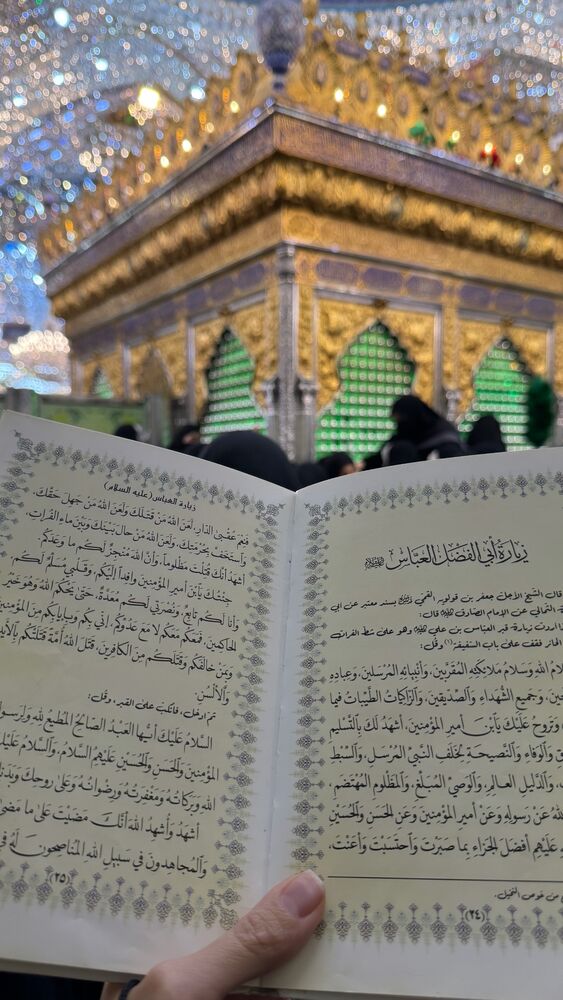 زيارة أبي الفضل العباس عليه السلام
قال الشيخ الأجل جعفر بن قولويه القمي بسند معتبر عن أبي
الثمالي عن الإمام الصادق قال:
أردت زيارة قبر العباس بن علي وهو على شط الفرات
الحائر فقف على باب السقيفة (١) وقل:
الله وسلام ملائكته المقربين، وأنبيائه المرسلين، وعباده
وجميع الشهداء والصديقين، والزاكيات الطيبات فيما
وتروح عليك يا بن أمير المؤمنين، أشهد لك بالتسليم
والوفاء والنصيحة لخلف النبي المرسل، والسبط
والدليل العالم، والوصي المبلغ، والمظلوم المهتضم،
الله عن رسوله وعن أمير المؤمنين وعن الحسن والحسين
عليهم أفضل الجزاء بما صبرت واحتسبت وأعنت،
من خوص النخيل.
(٢٤)
زيارة العباس (عليه السلام)
فنعم عقبى الدار، لعن الله من قتلك ولعن الله من جهل حقك،
واستخف بحرمتك، ولعن الله من حال بينك وبين ماء الفرات،
أشهد أنك قتلت مظلوما، وأن الله منجز لكم ما وعدكم،
جئتك يا بن أمير المؤمنين وافدا إليكم، وقلبي مسلم لكم،
وأنا لكم تابع، ونصرتي لكم معدة، حتى يحكم الله وهو خير
الحاكمين، فمعكم معكم لا مع عدوكم، إني بكم وبإيابكم من المؤمنين
وبمن خالفكم وقتلكم من الكافرين، قتل الله أمة قتلتكم بالأيدي
والألسن.
ثم ادخل، فانكب على القبر، وقل:
السلام عليك أيها العبد الصالح المطيع لله ولرسوله
المؤمنين والحسن والحسين عليهم السلام، والسلام عليك
الله وبركاته ومغفرته ورضوانه وعلى روحك وبدنك
أشهد وأشهد الله أنك مضيت على ما مضى
والمجاهدون في سبيل الله المناصحون له في
(٢٥)